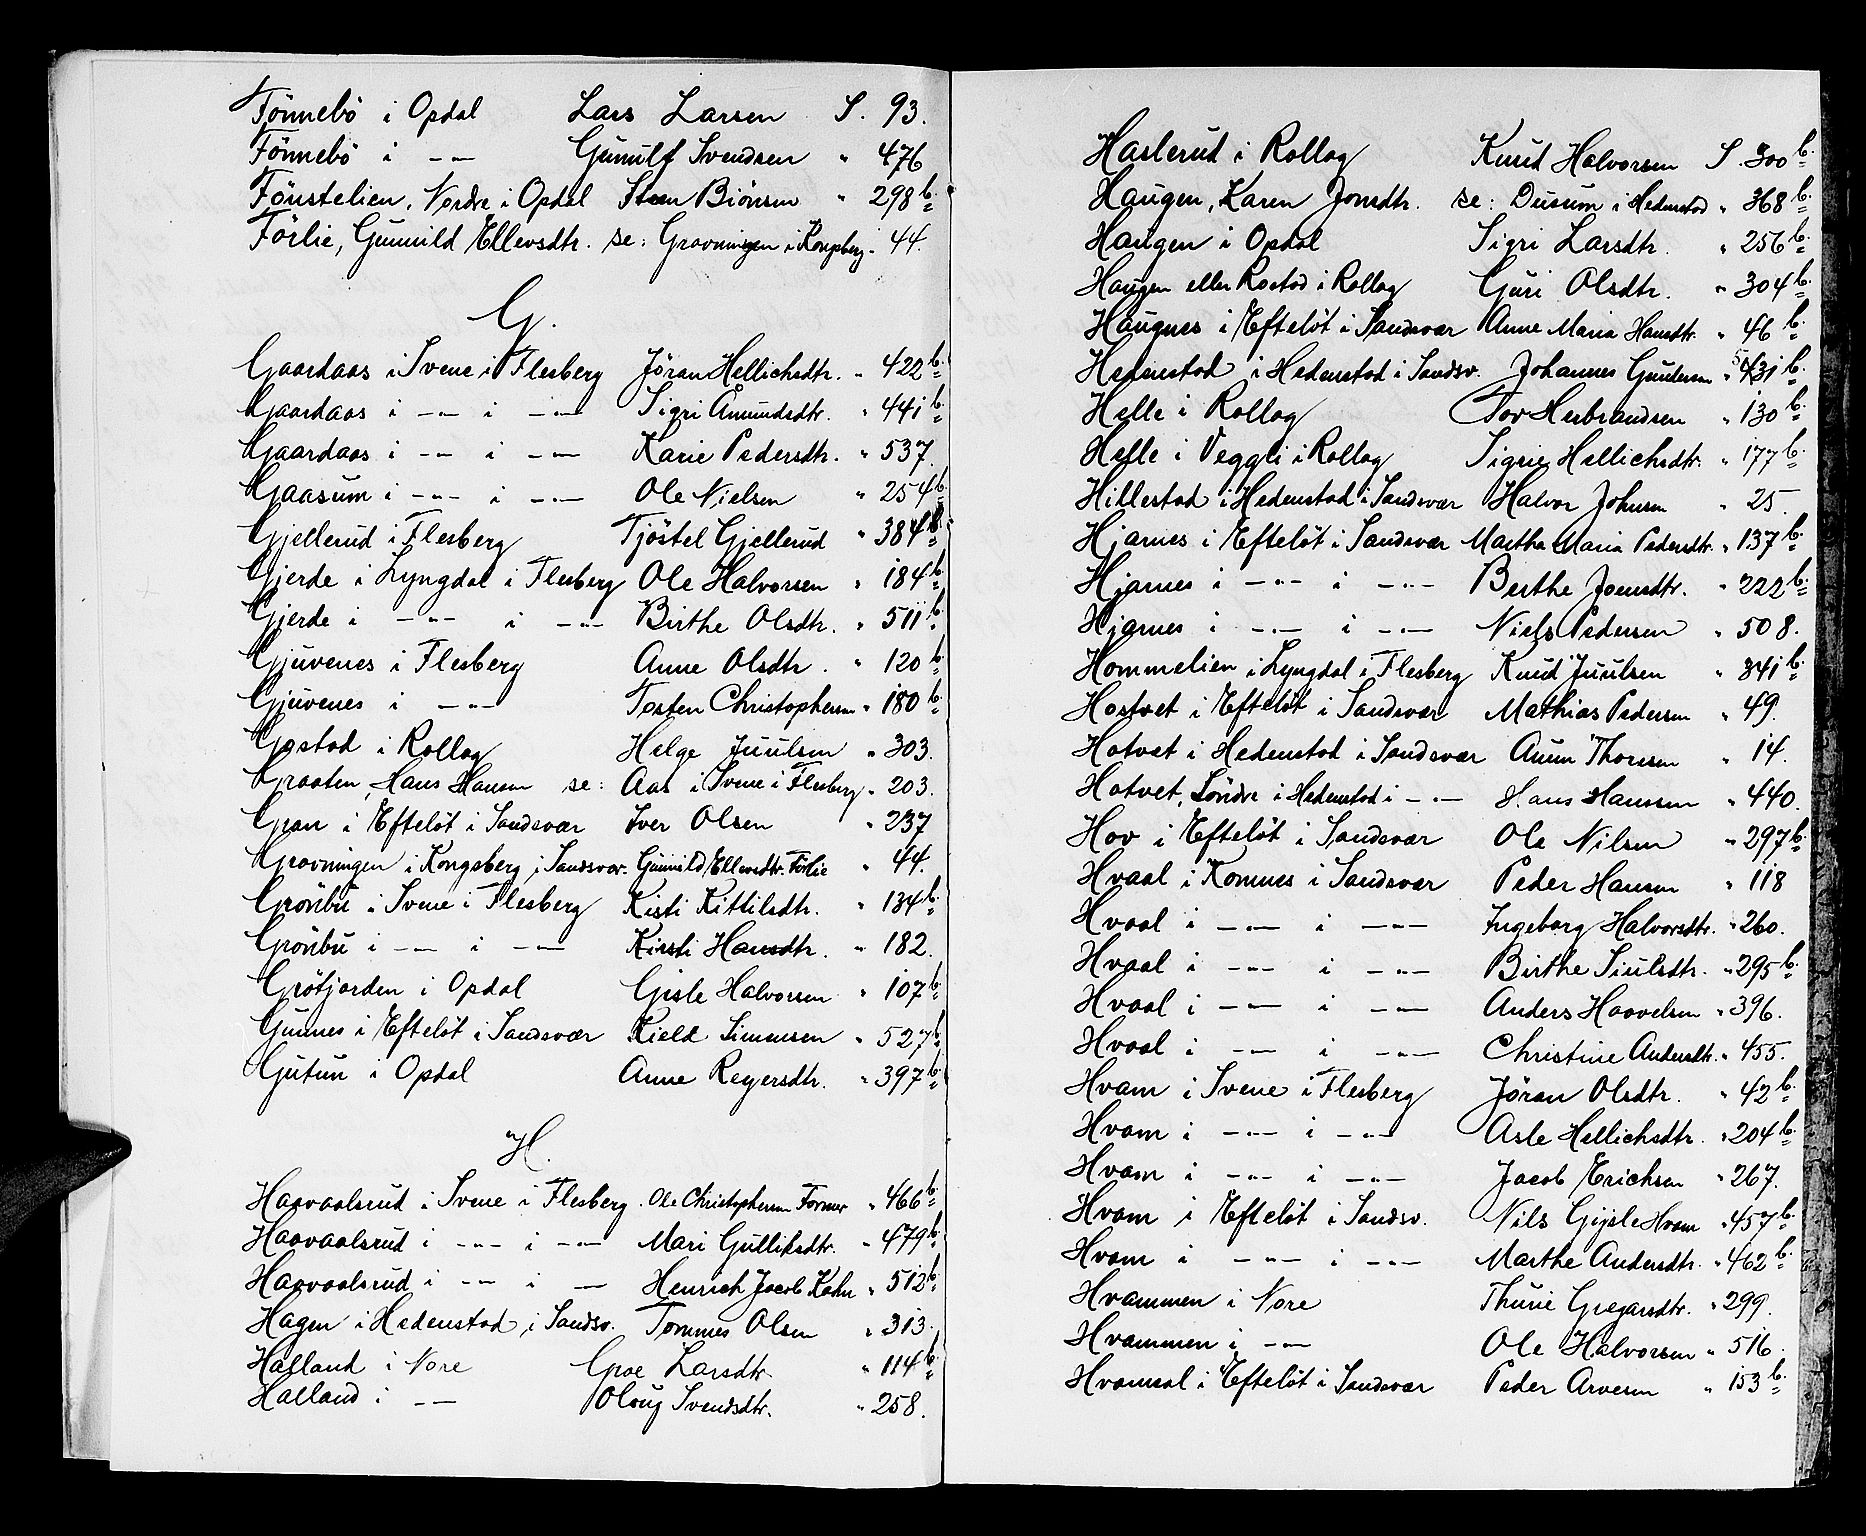 Fönnebö i Opdal Lars Larsen S. 93.
Fönnebö i -"- Gunulf Svendsen " 476
Fönstelien, Nordre i Opdal Sten Biönsen " 298 b.
Förlie, Gunnild Ellevsdtr. se: Gravningen i Kongsberg " 44.
G.
Gaardaas i Svene i Flesberg Jöran Hellichsdtr. " 422 b.
Gaardaas i -"- i -"- Sigri Åmundsdtr. " 441 b.
Gaardaas i -"- i -"- Karie Pedersdtr. " 537.
Gaasum i -"- i -"- Ole Nielsen " 254 b.
Gjellerud i Flesberg Tjöstel Gjellerud " 384 b.
Gjerde i Lyngdal i Flesberg Ole Halvorsen " 184 b.
Gjerde i -"- i -"- Birthe Olsdtr. " 511 b.
Gjuvenes i Flesberg Anne Olsdtr. " 120 b.
Gjuvenes i -"- Torsten Christophersen " 180 b.
Gostad i Rollag Helge Juulsen " 303.
Graaten, Hans Hansen se: Aas i Svene i Flesberg " 203.
Gran i Efteløt i Sandsvær Iver Olsen " 237
Gravningen i Kongsberg i Sandsvær. Gunnild Ellevsdtr. Förlie " 44.
Grönbu i Svene i Flesberg Kisti Kittilsdtr. " 134 b.
Grönbu i -"- i -"- Kirsti Hansdtr. " 182.
Grötjorden i Opdal Gisle Halvorsen " 107 b.
Gunnes i Efteløt i Sandsvær Kield Simensen " 527 b.
Gutun i Opdal Anne Reyersdtr. " 397 b.
H.
Haavaalsrud i Svene i Flesberg. Ole Christophersen Fornær " 466 b.
Haavaalsrud i -"- i -"- Mari Gulliksdtr. " 479 b.
Haavaalsrud i -"- i — Henrich Jacob Kahn " 512 b.
Hagen i Hedenstad i Sandsv. Tommes Olsen " 313.
Halland i Nore Groe Larsdtr. " 114 b.
Halland i -"- Oloug Svendsdtr. " 258.
Haslerud i Rollag Knud Halvorsen S. 300 b.
Haugen, Karen Jonsdtr. se: Dusum i Hedenstad " 368 b.
Haugen i Opdal Sigri Larsdtr. " 256 b.
Haugen eller Rostad i Rollag Guri Olsdtr. " 304 b.
Haugnes i Efteløt i Sandsvær Anne Maria Hansdtr. " 46 b.
Hedenstad i Hedenstad i Sandsv. Johannes Gundersen " 531 b.
Helle i Rollag Tov Herbrandsen " 130 b.
Helle i Veggli i Rollag Sigrie Hellichsdtr. " 177 b.
Hillestad i Hedenstad i Sandsvær Halvor Johnsen " 25.
Hjarnes i Efteløt i Sandsvær Marthe Maria Pedersdtr. " 137 b.
Hjarnes i -"- i -"- Berthe Joensdtr. " 222 b.
Hjarnes i -"- i -"- Niels Pedersen " 508.
Hommelien i Lyngdal i Flesberg Knud Juulsen " 341 b.
Hostvet i Efteløt i Sandsvær Mathias Pedersen " 49.
Hotvet i Hedenstad i Sandsvær Auen Thorsen " 14.
Hotvet, Söndre i Hedenstad i -"- Hans Hanssen " 440.
Hov i Efteløt i Sandsvær Ole Nilsen " 297 b.
Hvaal i Komnes i Sandsvær Peder Hansen " 118
Hvaal i -"- i -"- Ingeborg Halvorsdtr. " 260.
Hvaal i -"- i -"- Birthe Siulsdtr. " 295 b.
Hvaal i -"- i -"- Anders Haavelsen " 396.
Hvaal i -"- i -"- Christine Andersdtr. " 455.
Hvam i Svene i Flesberg Jöran Olsdtr. " 42 b.
Hvam i -"- i -"- Asle Hellichsdtr. " 204 b.
Hvam i -"- i -"- Jacob Erichsen " 267.
Hvam i Efteløt i Sandsv. Nils Gisle Hvam " 457 b.
Hvam i -"- i -"- Marthe Andersdtr. " 462 b.
Hvammen i Nore Thurie Gregarsdtr. " 299.
Hvammen i -"- Ole Halvorsen " 516.
Hvamsal i Efteløt i Sandsvær Peder Arvesen " 153 b.